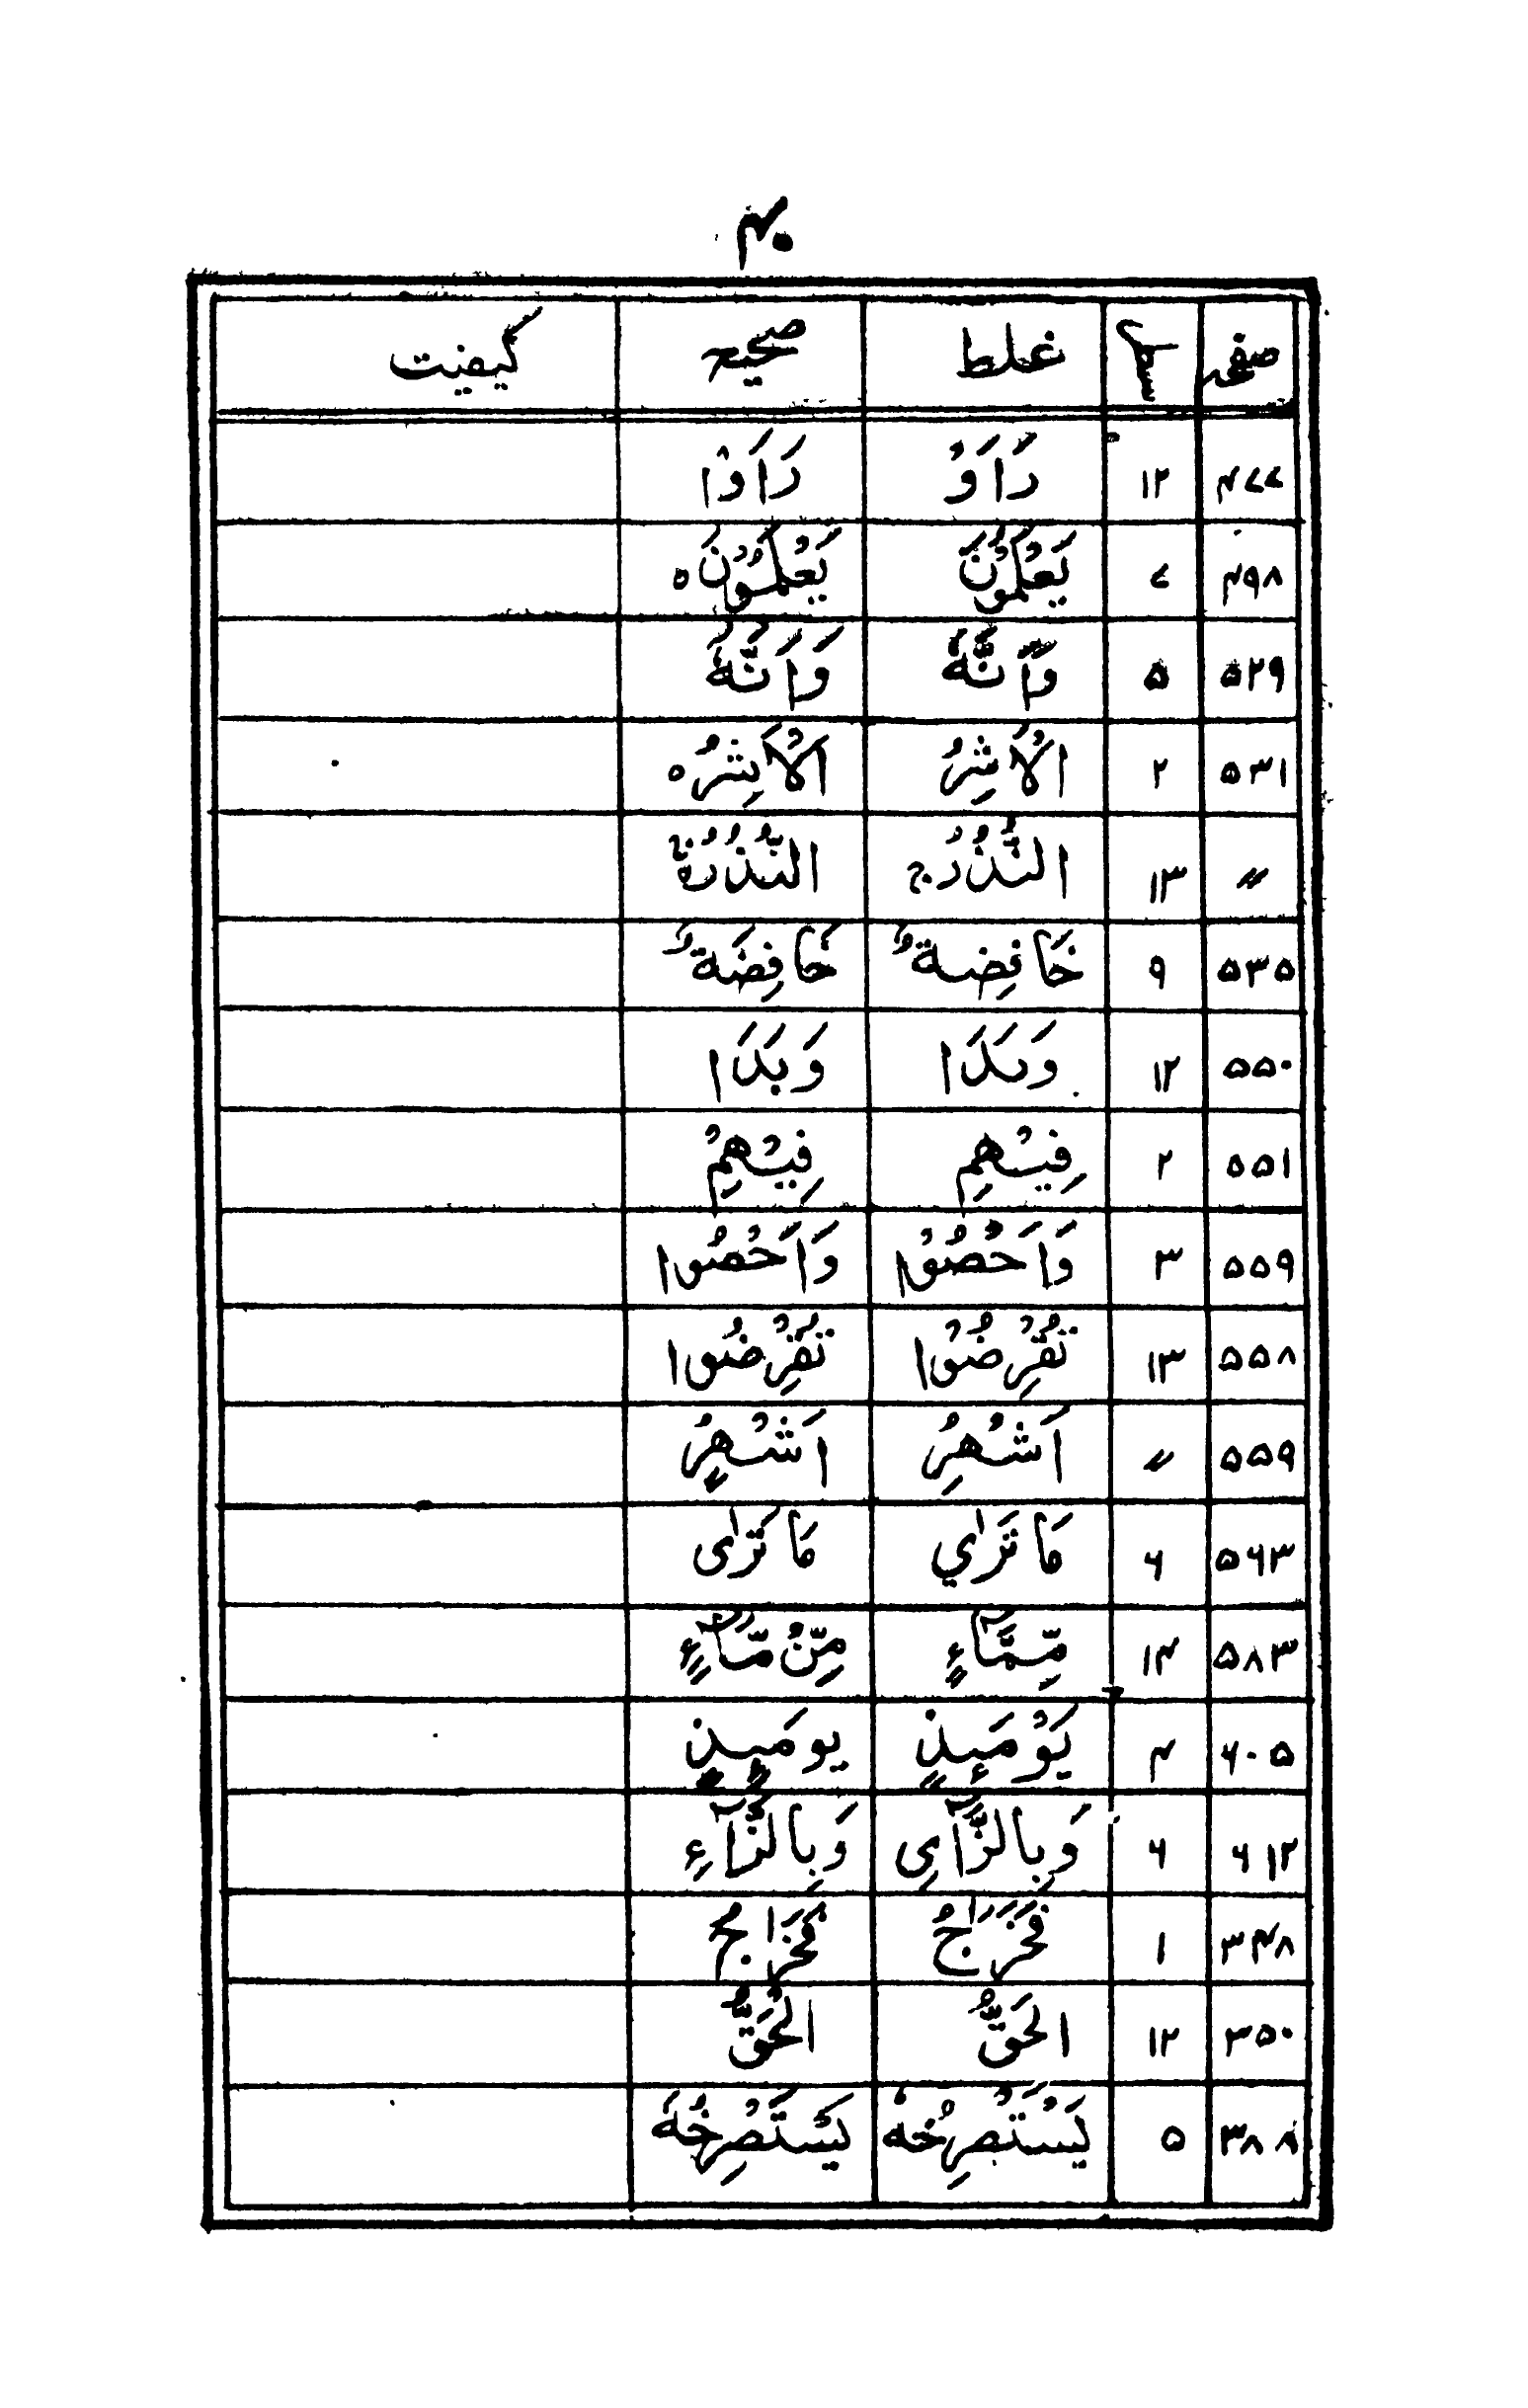 ۴
صفحہ سطر غلط صحیح کیفیت
۴۷۷ ۱۲ رَاَوْ رَاَوْا
۴۹۸ ۷ يَعْلَمُوْنَ يَعْلَمُوْنَ ہ
۵۲۹ ۵ وَاَنَّهٗ وَاَنَّهٗ
۵۳۱ ۲ الْاَشِرُ الْاَشِرُ ہ
〃 ۱۳ النُّذُرُ النُّذُرُ
۵۳۵ ۹ خَافِضَةٌ خَافِضَةٌ
۵۵۰ ۱۲ وَبَدَا وَبَدَا
۵۵۱ ۲ فِيْهِمْ فِيْهِمْ
۵۵۹ ۳ وَاَحْصُوْا وَاَحْصُوا
۵۵۸ ۱۳ تُقْرِضُوْا تُقْرِضُوا
۵۵۹ 〃 اَشْهُرِ اَشْهُرٍ
۵۶۳ ۶ مَا تَرٰي مَا تَرٰى
۵۸۳ ۱۴ مِّمَّآءٍ مِّنْ مَّآءٍ
۶۰۵ ۴ يَوْمَئِذٍ يومَئِذٍ
۶۱۲ ۶ وَبِالزَّآىِ وَبِالزَّآءِ
۳۴۸ ۱ فَخَرَاجُ فَخَرَاجُ
۳۵۰ ۱۲ الحَقُّ الحَقُّ
۳۸۸ ۵ يَسْتَصْرِخُهٗ يَسْتَصْرِخُهٗ